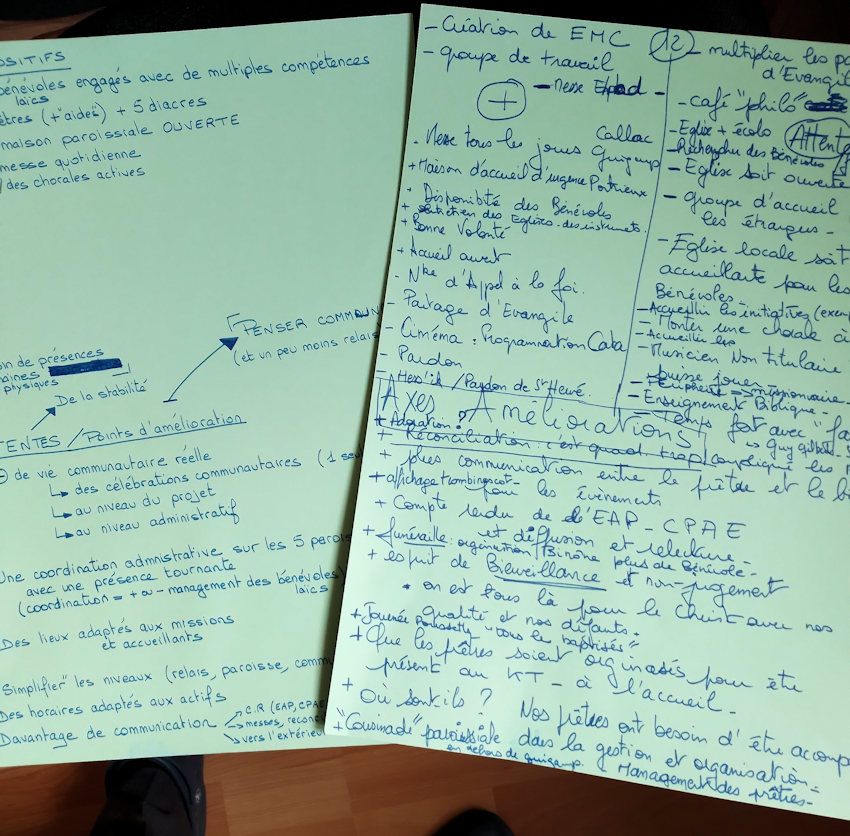 OSITIFS
bénévoles engagés avec de multiples compétences
laïcs
êtres (+"aides") + 5 diacres
maison paroissiale OUVERTE
messe quotidienne
des chorales actives
PENSER COMMUN
(et un peu moins relais
oin de présences
aines
physiques
De la stabilité
TENTES / Points d'amélioration
+ de vie communautaire réelle
des célébrations communautaires (1 seu
au niveau du projet
au niveau administratif
Une coordination admnistrative sur les 5 parois
avec une présence tournante
(coordination = + ou - management des bénévoles)
laïcs
Des lieux adaptés aux missions
et accueillants
"Simplifier" les niveaux (relais, paroisse, comm
Des horaires adaptés aux actifs
Davantage de communication
C.R (EAP, CPAE
messes, reconc
vers l'extérieu
- Création de EMC
- groupe de travail
- messe Ehpad -
+
- Messe tous les jours Callac
Guingamp
+ Maison d'accueil d'urgence Pontrieux
+ Disponibilité des Bénévoles
+ entretien des Eglises - des instruments.
+ Bonne Volonté
+ Accueil ouvert
- Nbre d'Appel à la foi.
- Partage d'Evangile
- Cinéma : Programmation Cata
- Pardon
/ Pardon de St Hervé.
12
- multiplier les pa
d'Evangil
- café "philo"
- Eglise + écolo
Attente
- Rechercher des Bénévoles
- Eglise soit ouverte
- groupe d'accueil
les étrangers -
- Eglise locale soit
accueillante pour les
Bénévoles -
- Accueillir les initiatives (exem
- Monter une chorale à
- Accueillir les
- Musicien Non titulaire
puisse jouer
- Périphérie => missionnaire -
- Enseignement Biblique -
- Temps fort avec "fa
Guy gilbert -
Axes d'Améliorations
+ Adoration ?
+ Réconciliation : c'est quand trop compliqué les
+ plus communication entre le prêtre et le b
+ affichage + trombinoscop - pour les évènements
+ Compte rendu de d'EAP - CPAE
et diffusion et relecture -
+ funéraille : organisation Binôme plus de Bénévole -
+ esprit de Bienveillance et non-jugement
• on est tous là pour le Christ avec nos
qualité et nos défauts.
+ Journée "tous les baptisés"
+ Que les prêtres soient organisés pour être
présent au KT - à l'accueil -
+ Où sont ils ? Nos prêtres ont besoin d'être accomp
+ "Cousinade" paroissiale dans la gestion et organisation -
en dehors de guingamp. Management des prêtres -